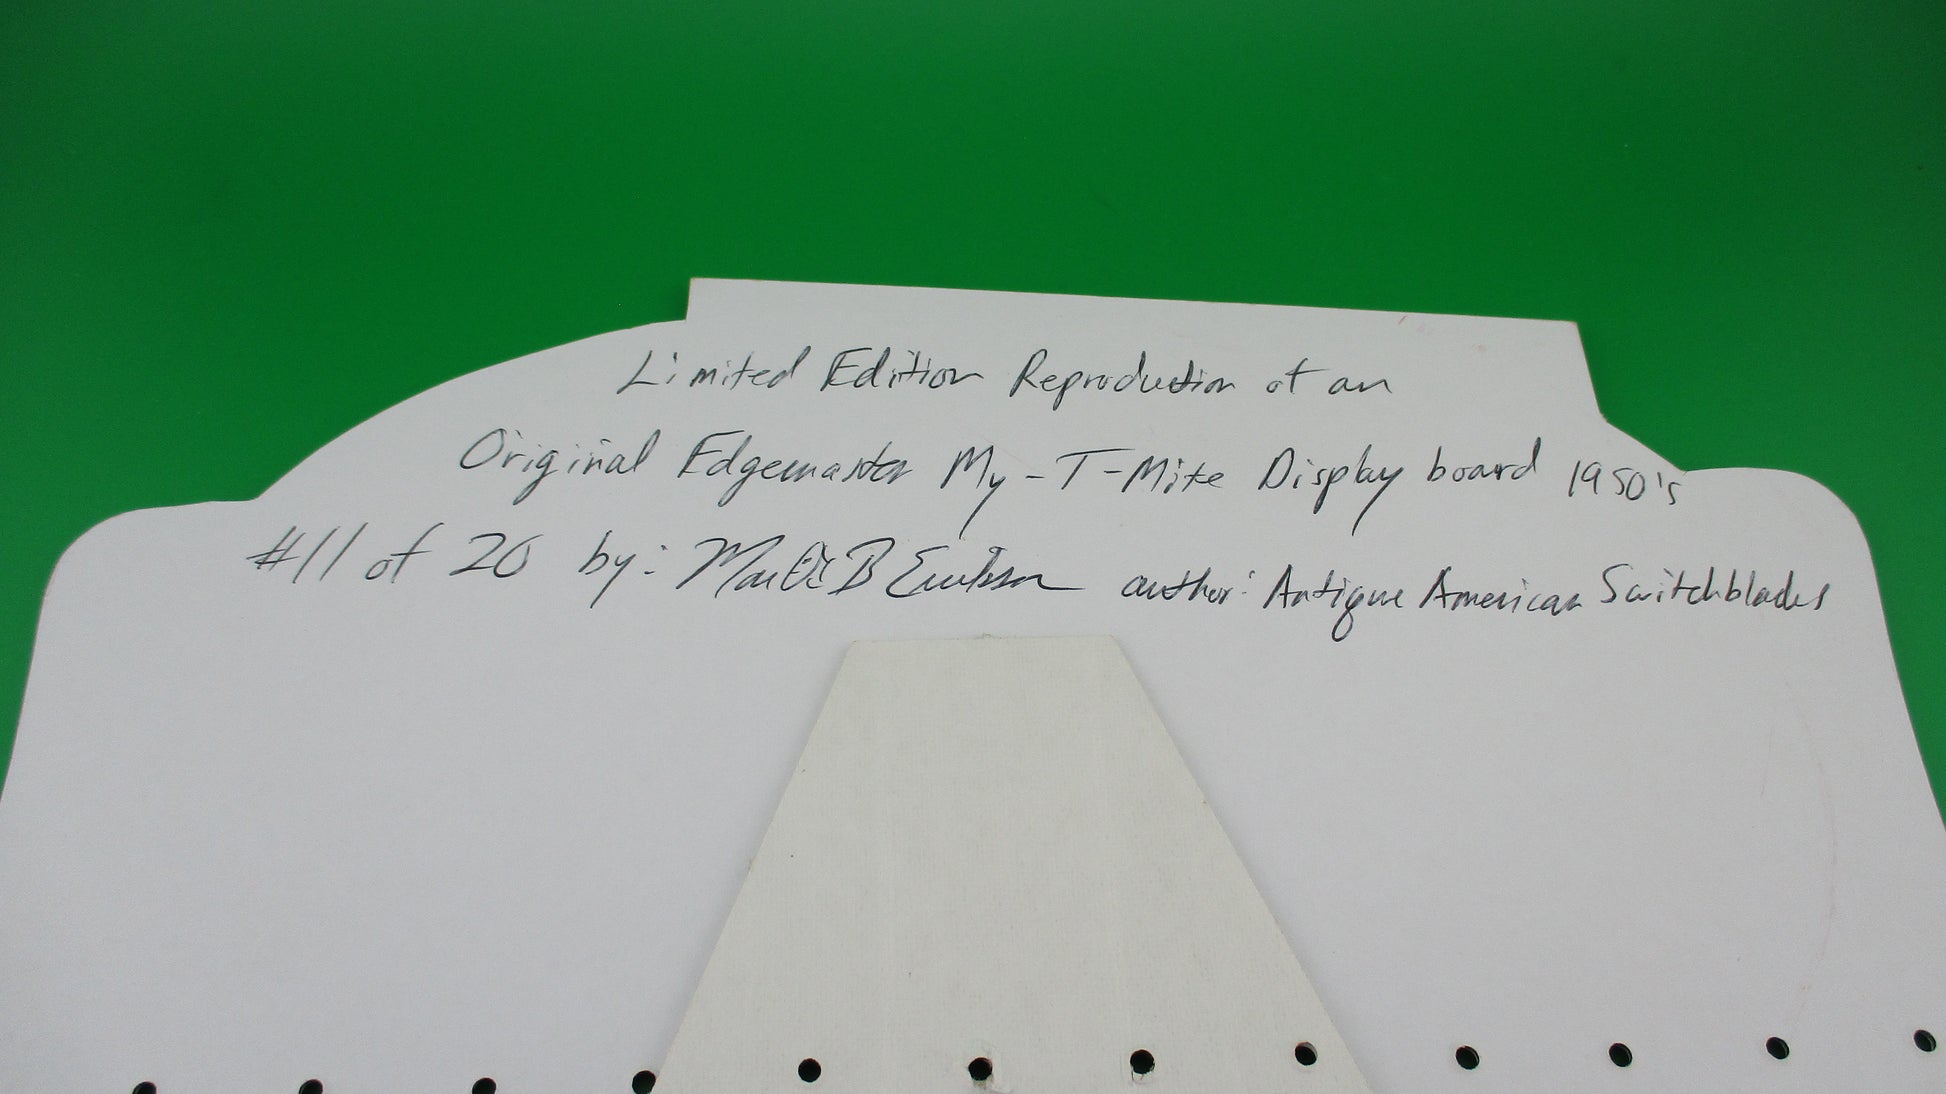 Limited Edition Reproduction of an
Original Edgemaster My-T-Mite Display board 1950's
#11 of 20 by: Mark B Erickson author: Antique American Switchblades